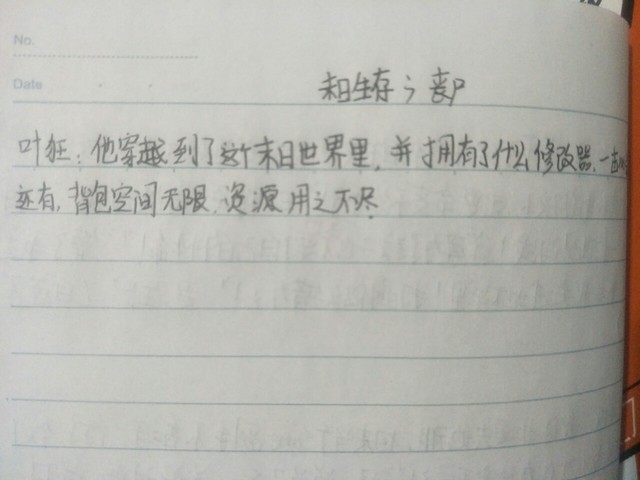 No.
Date
末日生存之丧尸
叶狂：他穿越到了这个末日世界里，并拥有了什么修改器，一
还有，背包空间无限，资源用之不尽.